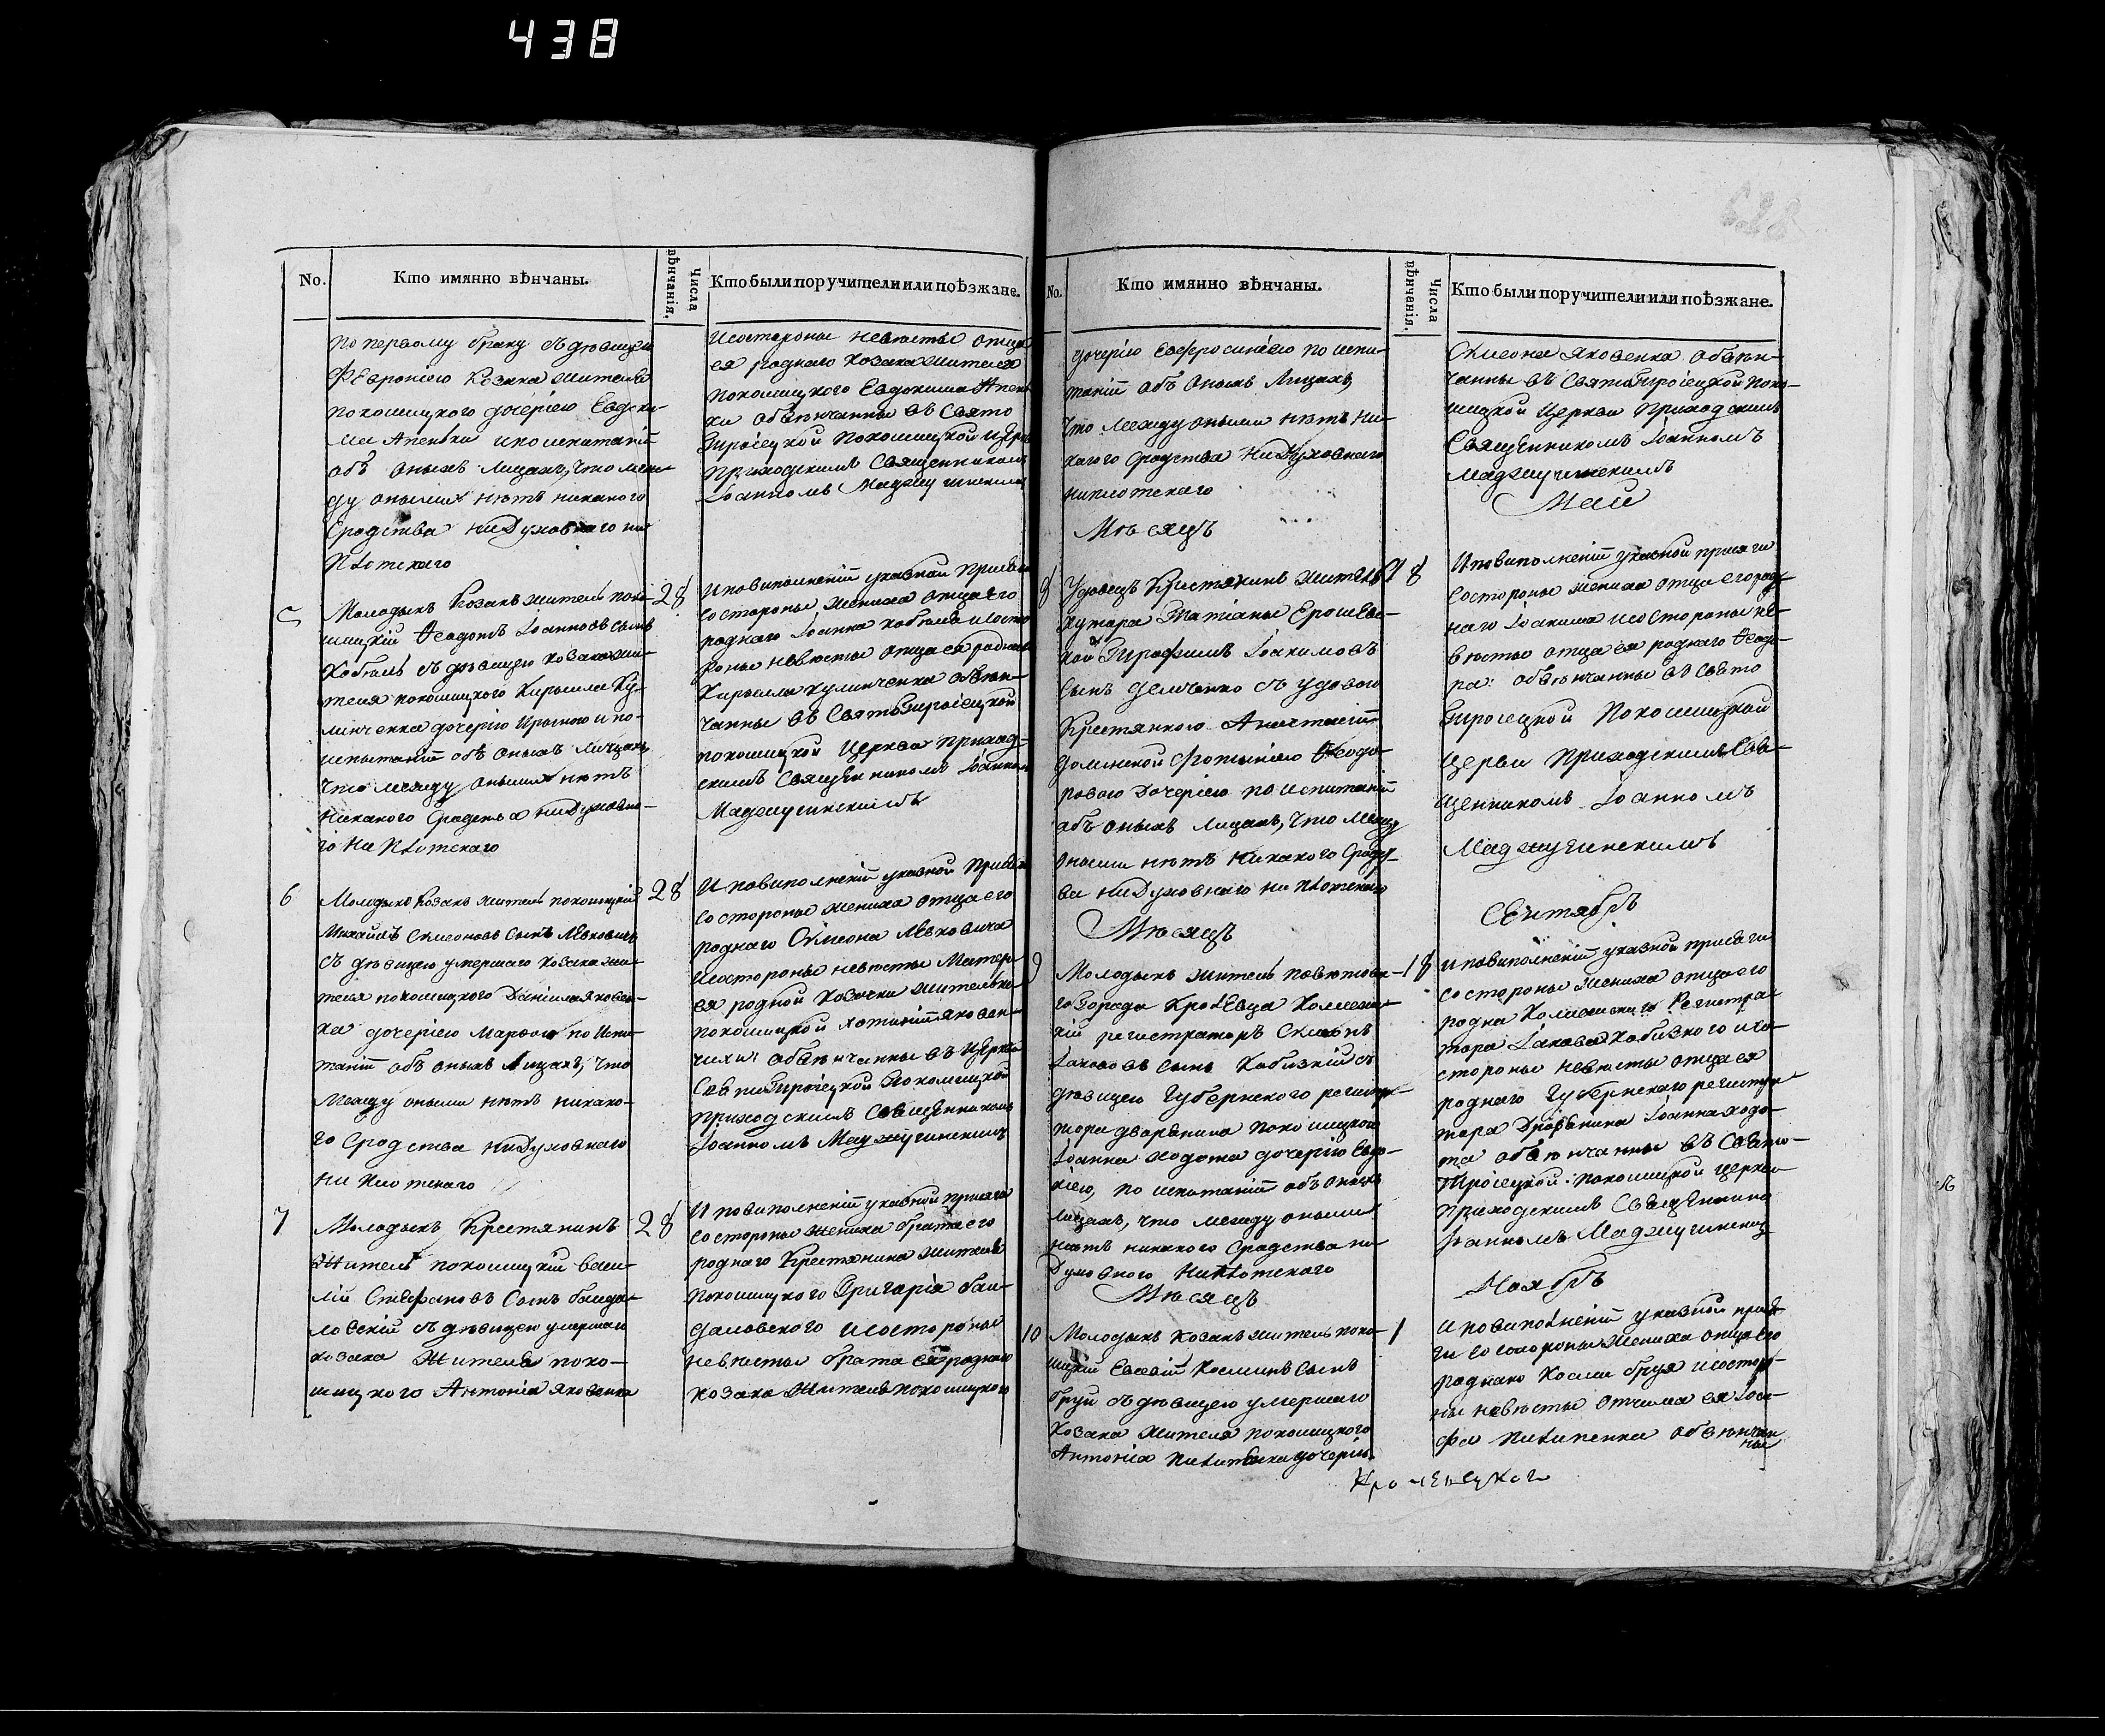 438
638
No.
Кто имянно вѣнчаны.
Числа вѣнчанія.
Кто были поручители или поѣзжане.
по первому браку съ дѣвицею
Февроніею козака жителя
покошицкого дочерію Евдоки-
ма Апенька и по испытаніи
объ оныхъ лицахъ, что меж-
ду оными нѣтъ никакого
сродства ни духовнаго ни
плотскаго
Исостороны невѣсты отца
ея роднаго козака жителя
покошицкого Евдокима Апень
ка обвѣнчанны въ Свято
Троіецкой покошицкой церкв
приходскимъ Священникомъ
Іоанномъ Маджугинскимъ
5
Молодыкъ козакъ житель поко-
шицкій Ѳеодотъ Іоанновъ сынъ
Кобтль съ дѣвицею козака жи-
теля покошицкого Кирилла Ку-
линченка дочерію Ириною и по
испытаніи объ оныхъ лицахъ
что между оными нѣтъ
никакого сродства ни духовна-
го ни плотскаго
28
И повиполненіи указной присяги
со стороны жениха отца его
роднаго Іоанна и состо
роны невѣсты отца ея роднаго
Кирилла Кулинченка обвѣн-
чанны въ СвятоТроіецкой
покошицкой Церкви приход-
скимъ Священникомъ Іоанномъ
Маджугинскимъ
6
Молодыкъ козакъ житель покошицкій
Михайлъ Симеоновъ сынъ Левковичъ
съ дѣвицею умершаго козака жи-
теля покошицкого Даніила Яковен-
ка дочерію Марѳою по испы-
таніи объ оныхъ лицахъ, что
между оными нѣтъ никако-
го сродства ни духовнаго
ни плотскаго
28
И повиполненіи указной присяги
со стороны жениха отца его
роднаго Симеона Левковича
исостороны невѣсты матери
ея родной козачки жительки
покошицкой Яковен-
чихи обвѣнчанны въ церкви
СвятоТроіецкой Покошицкой
приходскимъ Священникомъ
Іоанномъ Маджугинскимъ
7
Молодыкъ Крестянинъ
житель покошицкій Васи-
лій Стефановъ Сынъ Байда-
ловскій съ дѣвицею умершаго
козака жителя поко-
шицкого Антонія Яковенка
28
И повиполненіи указной присяги
со стороны жениха брата его
роднаго Крестянина жителя
покошицкого Григорія Бай-
даловского исостороны
невѣсты брата ея роднаго
козака жителя покошицкого
No.
Кто имянно вѣнчаны.
Числа вѣнчанія.
Кто были поручители или поѣзжане.
дочерію Евфросиніею по испы-
таніи объ оныхъ лицахъ,
что между оными нѣтъ ни-
какого сродства ни духовнаго
ни плотскаго
Мѣсяцъ
Симеона Яковенка обвѣн-
чанны въ СвятоТроіецкой поко-
шицкой Церкви Приходскимъ
Священникомъ Іоанномъ
Маджугинскимъ
Май
8
Удовецъ Крестянинъ житель
хутора Татіаны Ерошевс-
кой Трофимъ Іоакимовъ
Сынъ Демченко съ удовою
Крестянкою Анастасіи
Фотиніею Ѳеодо-
ровою дочерію по испитаніи
объ оныхъ лицахъ, что между
оными нѣтъ никакого сродст-
ва ни духовнаго ни плотскаго
Мѣсяцъ
8
И повиполненіи указной присяги
со стороны жениха отца его род-
наго Іоакима и со стороны не-
вѣсты отца ея роднаго Ѳеодо-
ра: обвѣнчанны въ Свято
Троіецкой Покошицкой
Церкви Приходскимъ Свя-
щенникомъ Іоанномъ
Маджугинскимъ
Сентябрь
9
Молодыкъ житель повѣтова-
го города Кролевца Коллежс-
кій регистраторъ Симеонъ
Іаковъ сынъ Кобизкій съ
дѣвицею Губернского регистра-
тора дворянина Покошицкого
Іоанна Ходота дочерію Евдо-
кіею, по испитаніи объ оныхъ
лицахъ, что между оными
нѣтъ никакого сродства ни
духовного ни плотскаго
Мѣсяцъ
18
И повиполненіи указной присяги
со стороны жениха отца его
родна Коллежскаго Регистра-
тора Іакова Кобизкого и со
стороны невѣсты отца ея
роднаго Губернскаго регистра
тора Дворянина Іоанна Ходо-
та обвѣнчанны въ Свято-
Троіецкой Покошицкой церкви
приходскимъ Священнико
Іоанномъ Маджугинским
Ноябрь
10
Молодыкъ козакъ житель поко-
шицкій Евсевій Косминъ сынъ
Бруй съ дѣвицею умершаго
козака жителя покошицкого
Антонія дочерію
1
И повиполненіи указной прися-
ги со стороны жениха отца его
роднаго Космы Бруя исосторо-
ны невѣсты отчима ея Іоси-
фа Пилипенка обвѣнчан
ны
Кролевецког